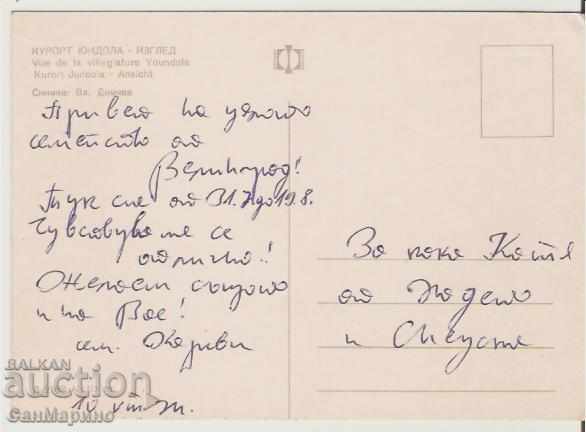 КУРОРТ ЮНДОЛА - ИЗГЛЕД
Vue de la villegiature Youndola
Kurort Jundola - Ansicht
Снимка: Вл. Димчев
Привет на цялото
семейство от
Велинград!
Тук сме от 31. до 19.8.
Чувствуваме се
отлично!
Желаем същото
и на Вас!
сем.
За кака Катя
от
и
BALKAN
auction
СанМарино